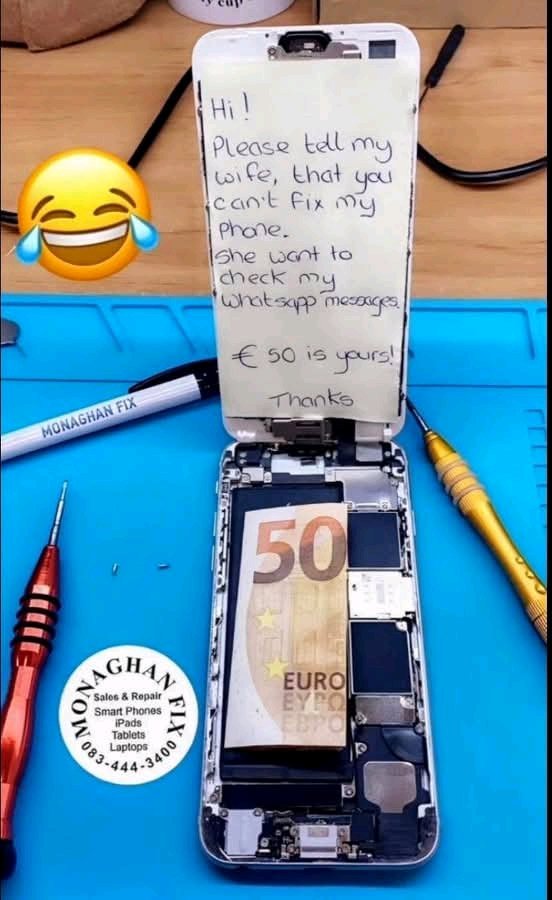 y cup
Hi!
Please tell my
wife, that you
can't fix my
Phone.
She want to
check my
whatsapp messages.
€ 50 is yours!
Thanks
MONAGHAN FIX
50
EURO
ΕΥΡΩ
ЕВРО
MONAGHAN FIX
Sales & Repair
Smart Phones
iPads
Tablets
Laptops
083-444-3400